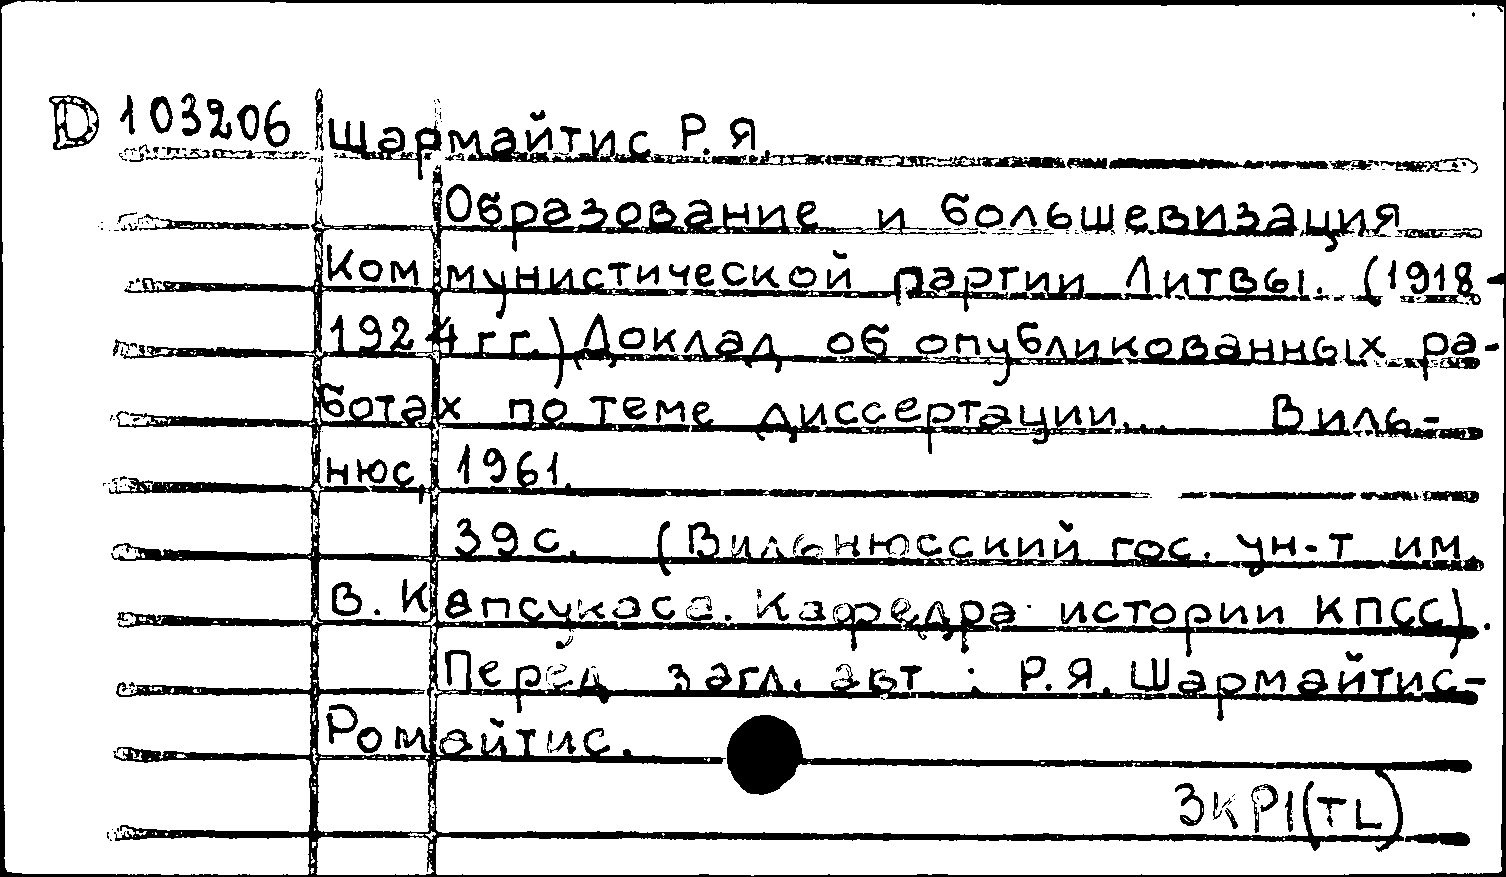 D 103206 Шармайтис Р. Я.
Образование и большевизация
Коммунистической партии Литвы. (1918-
1924 гг.) Доклад об опубликованных ра-
ботах по теме диссертации... Виль-
нюс, 1961.
39 с. (Вильнюсский гос. ун-т им.
В. Капсукаса. Кафедра истории КПСС).
Перед загл. авт : Р.Я. Шармайтис-
Ромайтис.
3КР1(TL)